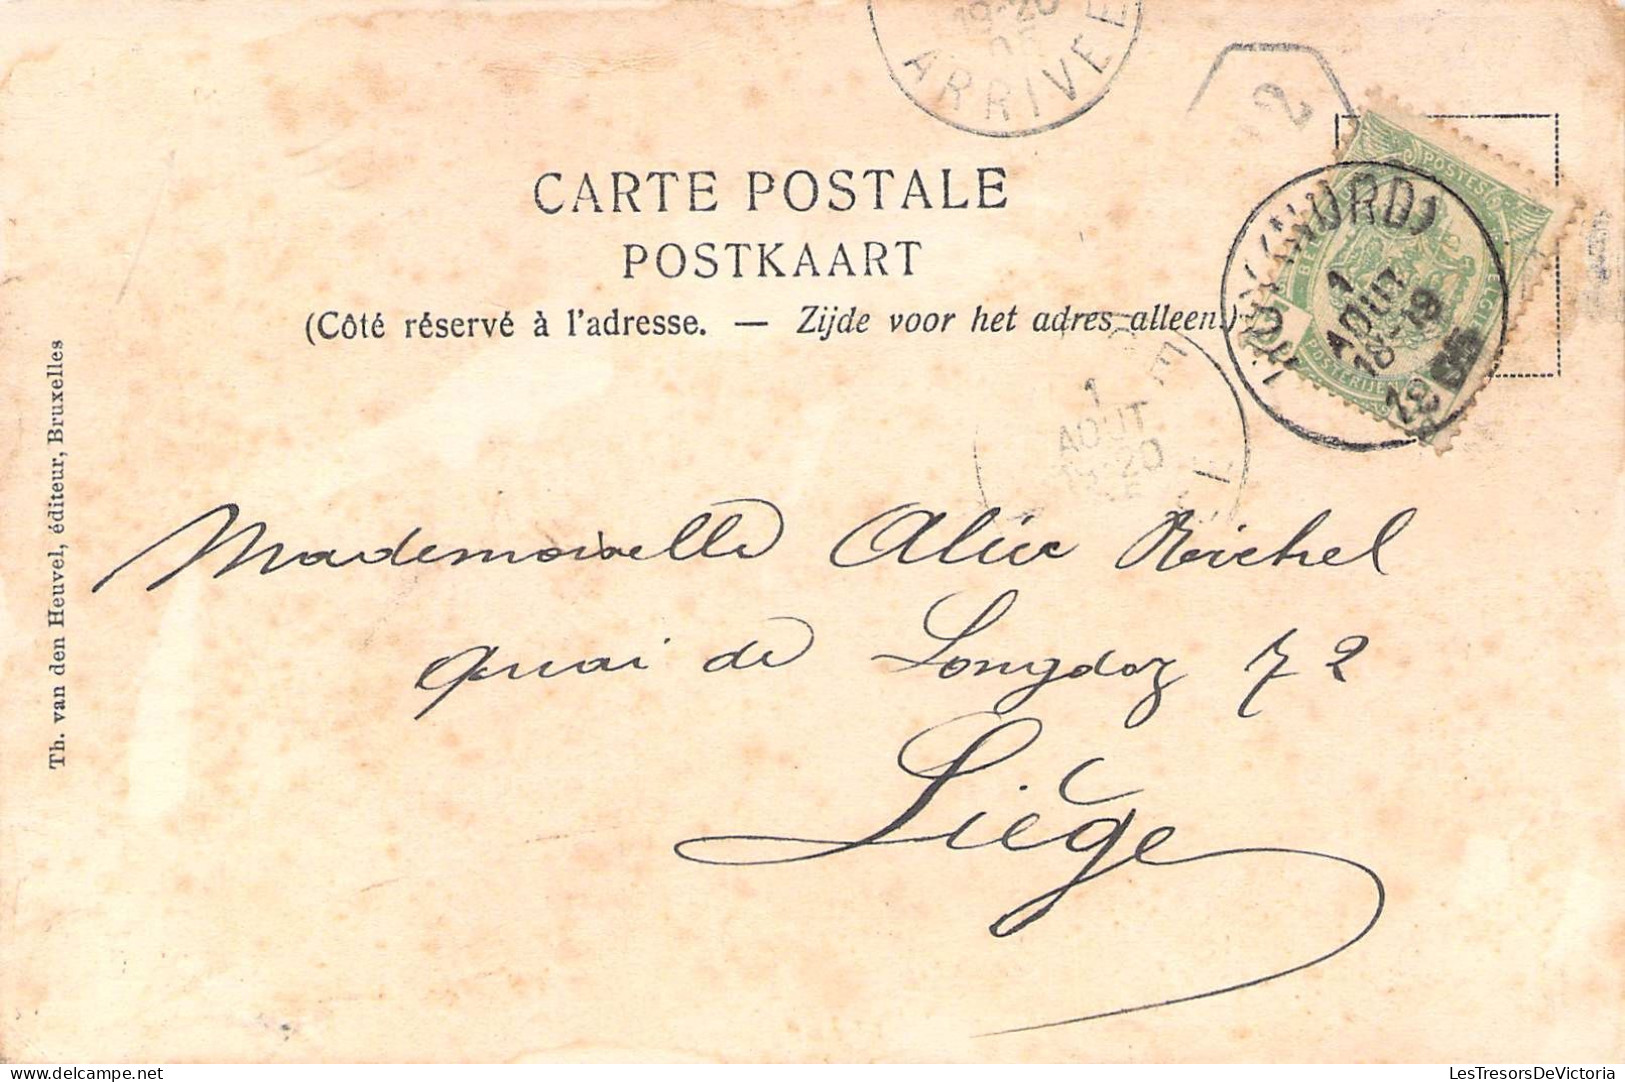 19-20
05
ARRIVEE
2
CARTE POSTALE
POSTKAART
(Côté réservé à l'adresse. — Zijde voor het adres alleen.)
POSTES
POSTERIJEN
HUY (NORD)
1
AOUT
18-19
1
AOUT
19-20
Th. van den Heuvel, éditeur, Bruxelles
Mademoiselle Alice Reichel
Quai de Longdoz 72
Liège
LesTresorsDeVictoria